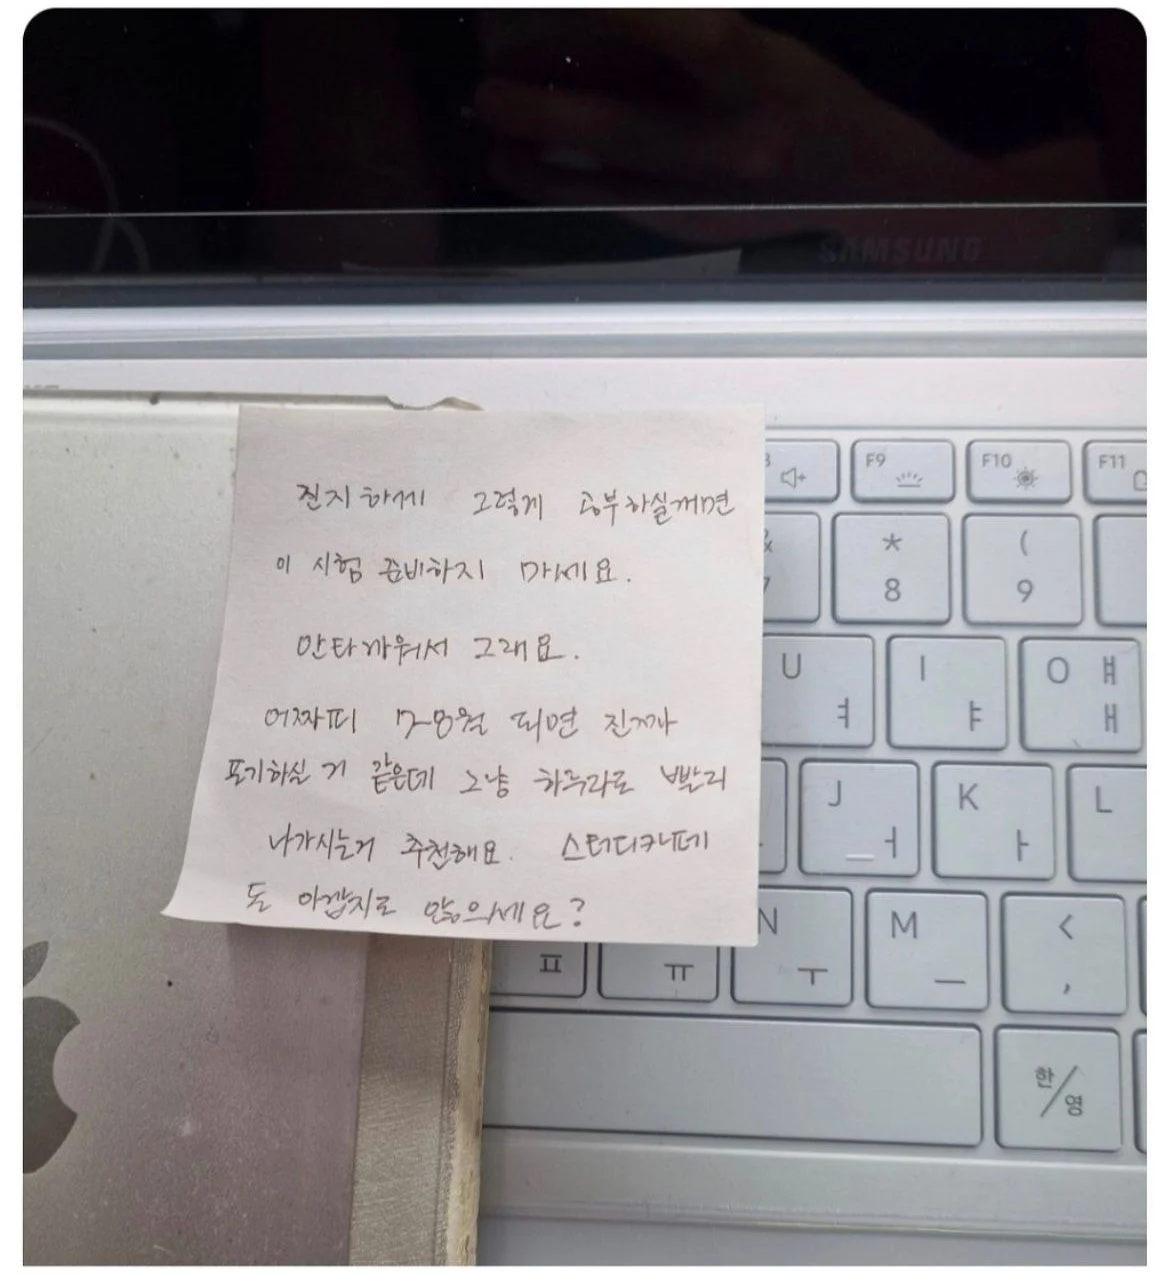 SAMSUNG
진지하게 그렇게 공부하실꺼면
이 시험 준비하지 마세요.
안타까워서 그래요.
어짜피 7-8월 되면 진짜
포기하실 거 같은데 그냥 하루라도 빨리
나가시는거 추천해요. 스터디카페
돈 아깝지도 않으세요?
F9 F10 F11
* (
8 9
U ㅕ I ㅑ O ㅒ ㅐ
J ㅓ K ㅏ L
ㅍ ㅠ N ㅜ M ㅡ < ,
한/영